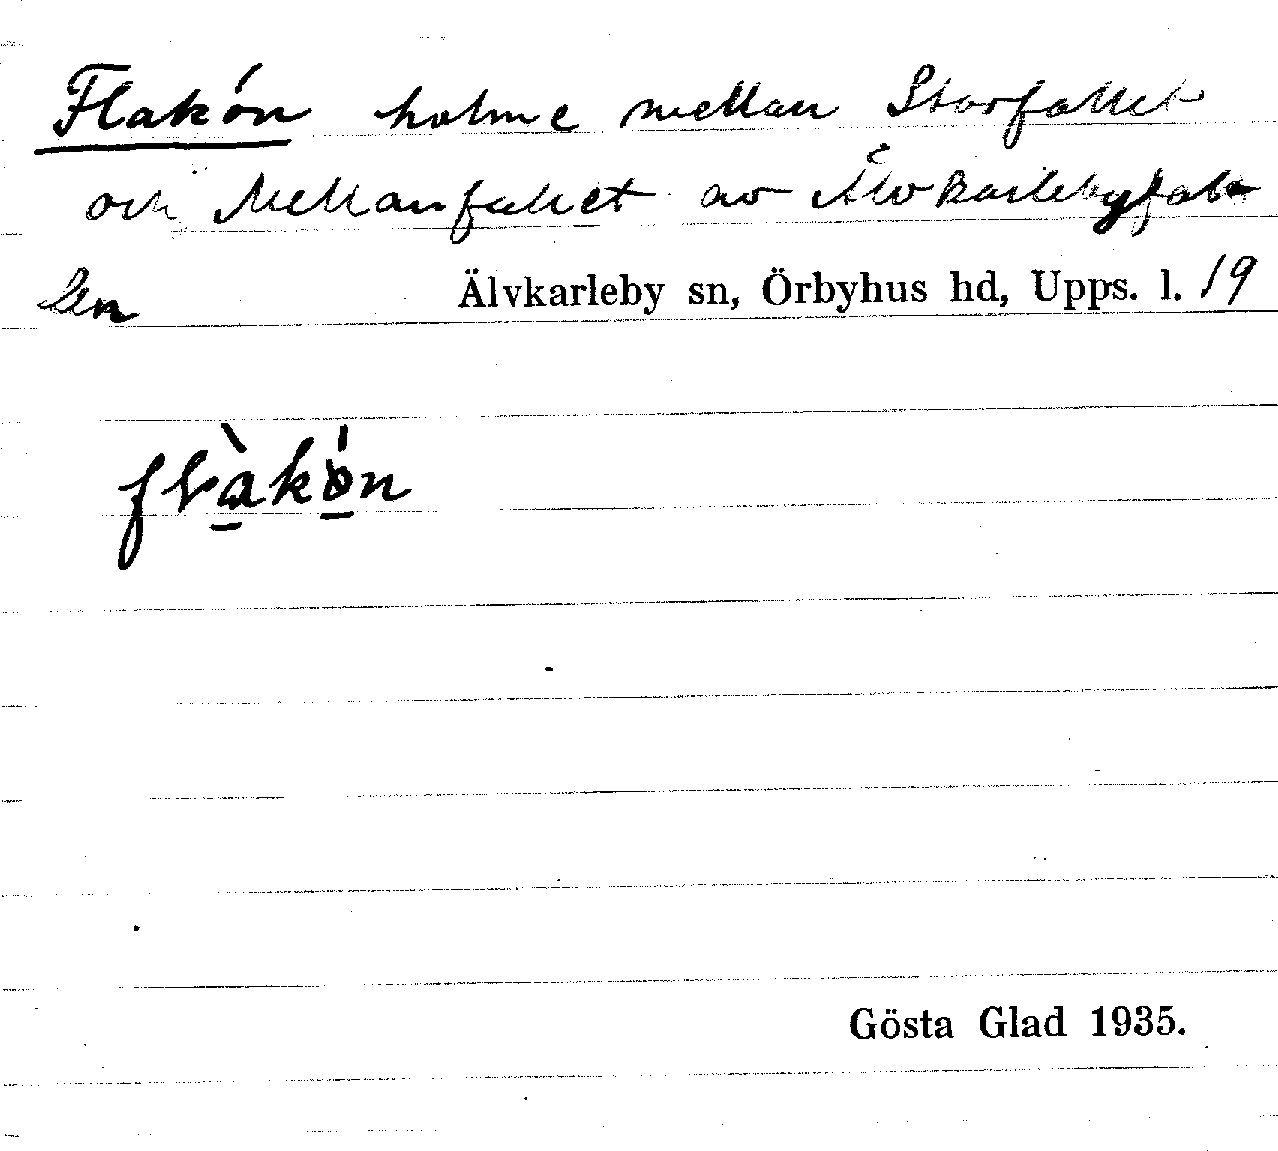 Flakön holme mellan Storfallet
och Mellanfallet av Älvkarlebyfal-
len Älvkarleby sn, Örbyhus hd, Upps. l. 19
flàkø̀n
Gösta Glad 1935.